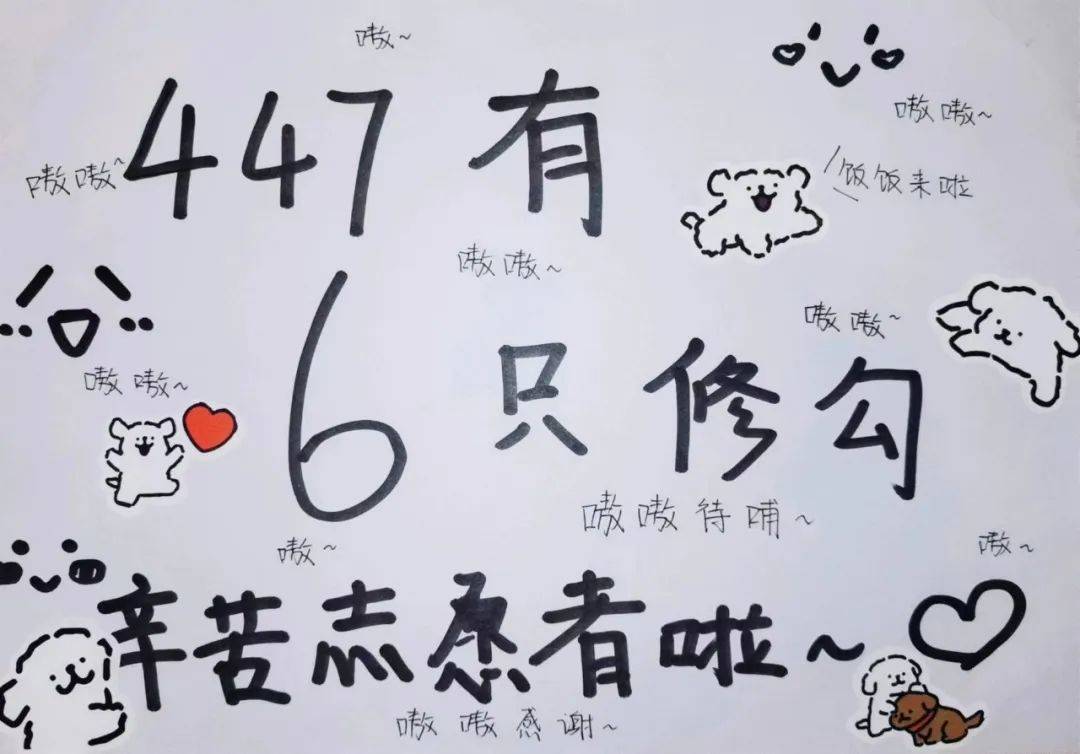 嗷~
447有
嗷嗷~
嗷嗷~
饭饭来啦
嗷嗷~
嗷嗷~
嗷嗷~
6只修勾
嗷嗷待哺~
嗷~
嗷~
辛苦志愿者啦~
嗷嗷感谢~